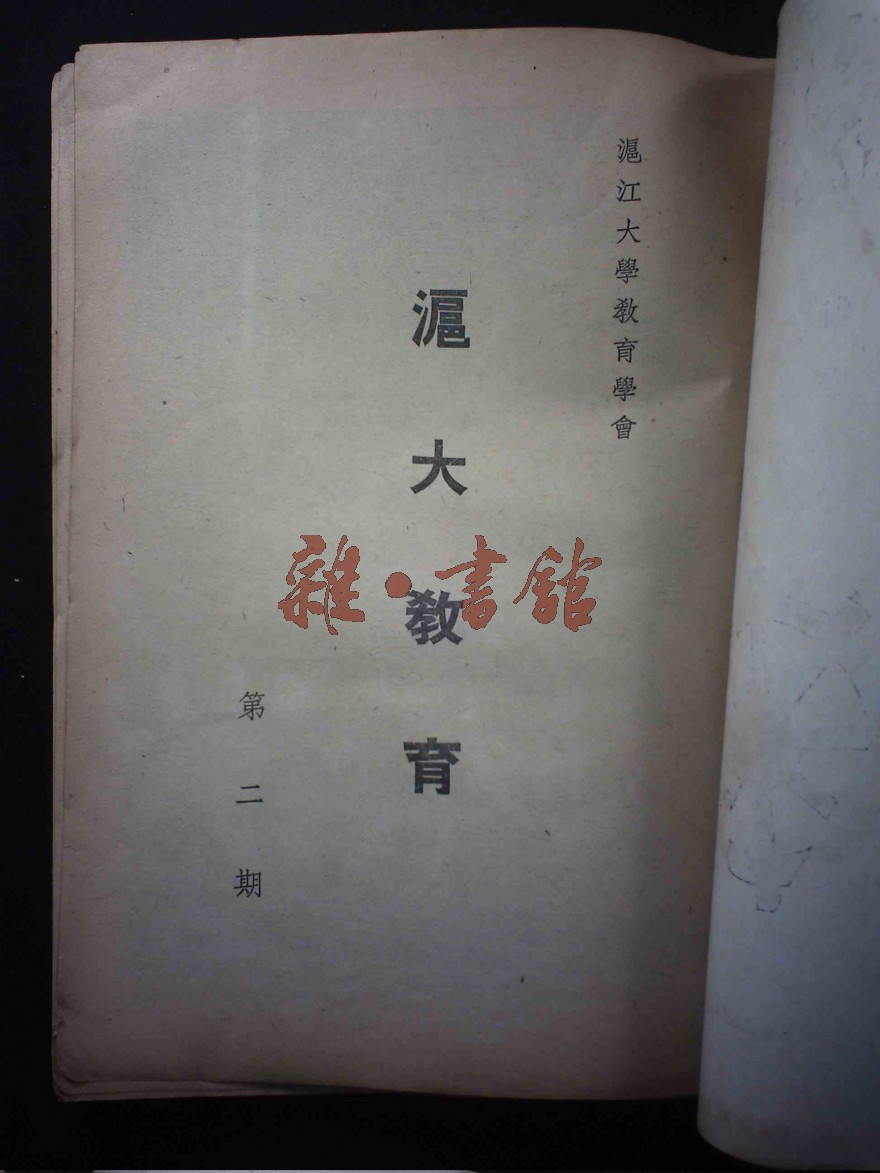 滬江大學教育學會
滬大教育
第二期
雜·書館